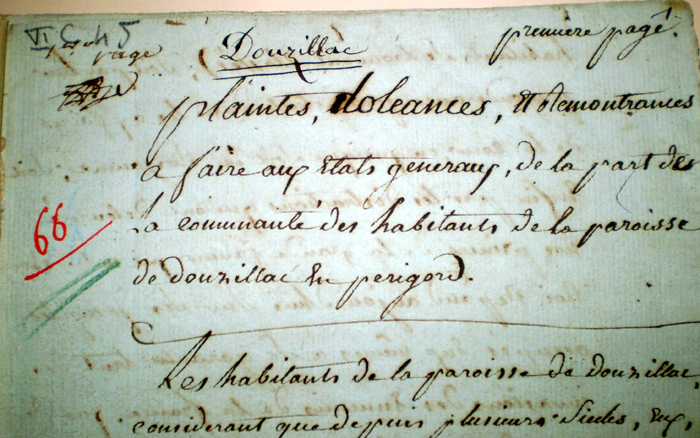 VI C 45
1ere page
Douzillac
premiere page.
plaintes, doleances, et Remontrances
a faire aux Etats generaux, de la part des
La communauté des habitants de la paroisse
de douzillac En perigord.
66
Les habitants de la paroisse de douzillac
considerant que depuis plusieurs siecles, eux,